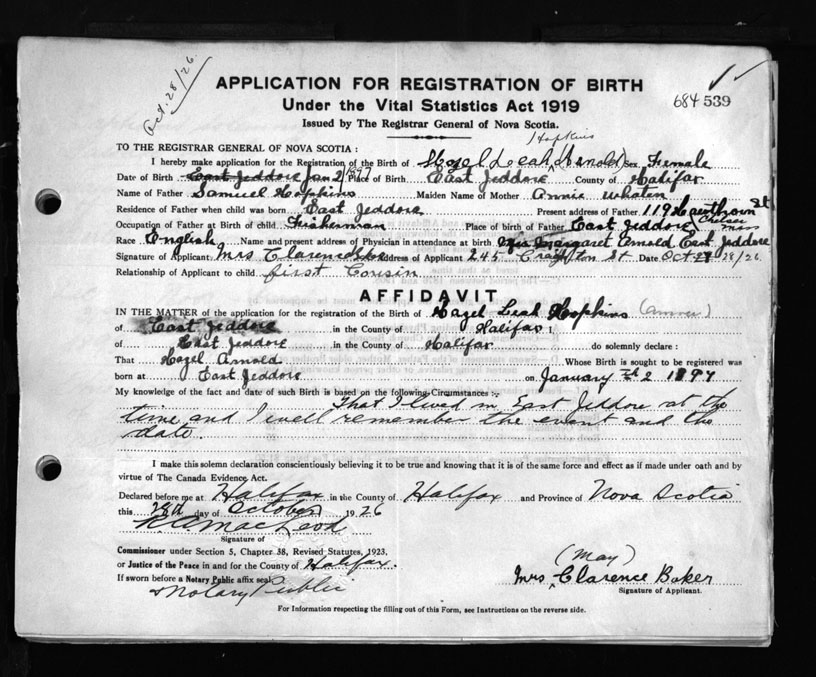 Oct. 28/26.
APPLICATION FOR REGISTRATION OF BIRTH
Under the Vital Statistics Act 1919
684 539
Issued by The Registrar General of Nova Scotia.
Hopkins
TO THE REGISTRAR GENERAL OF NOVA SCOTIA :
I hereby make application for the Registration of the Birth of Hazel Leah (Arnold) Sex Female
Date of Birth East Jeddore Jan 2 1897 Place of Birth East Jeddore County of Halifax
Name of Father Samuel Hopkins Maiden Name of Mother Annie
Residence of Father when child was born East Jeddore Present address of Father 119 Hawthorn St
Chelsea Mass
Occupation of Father at Birth of child Fisherman Place of birth of Father East Jeddore
Race English Name and present address of Physician in attendance at birth Mrs Margaret Arnold East Jeddore
Signature of Applicant Mrs Clarence Address of Applicant 245 Creighton St Date Oct 28/26.
Relationship of Applicant to child first Cousin
AFFIDAVIT
IN THE MATTER of the application for the registration of the Birth of Hazel Leah Hopkins
of East Jeddore in the County of Halifax I.
of East Jeddore in the County of Halifax do solemnly declare :
That Hazel Arnold Whose Birth is sought to be registered was
born at East Jeddore on January 2 1897
My knowledge of the fact and date of such Birth is based on the following Circumstances :-
That I lived in East Jeddore at the
time and I well remember the event and the
date.
I make this solemn declaration conscientiously believing it to be true and knowing that it is of the same force and effect as if made under oath and by
virtue of The Canada Evidence Act.
Declared before me at Halifax in the County of Halifax and Province of Nova Scotia
this 28th day of October 1926
MacLeod
Signature of
Commissioner under Section 5, Chapter 38, Revised Statutes, 1923.
or Justice of the Peace in and for the County of Halifax.
If sworn before a Notary Public affix seal
& Notary Public
(May)
Mrs Clarence Baker
Signature of Applicant.
For Information respecting the filling out of this Form, see Instructions on the reverse side.